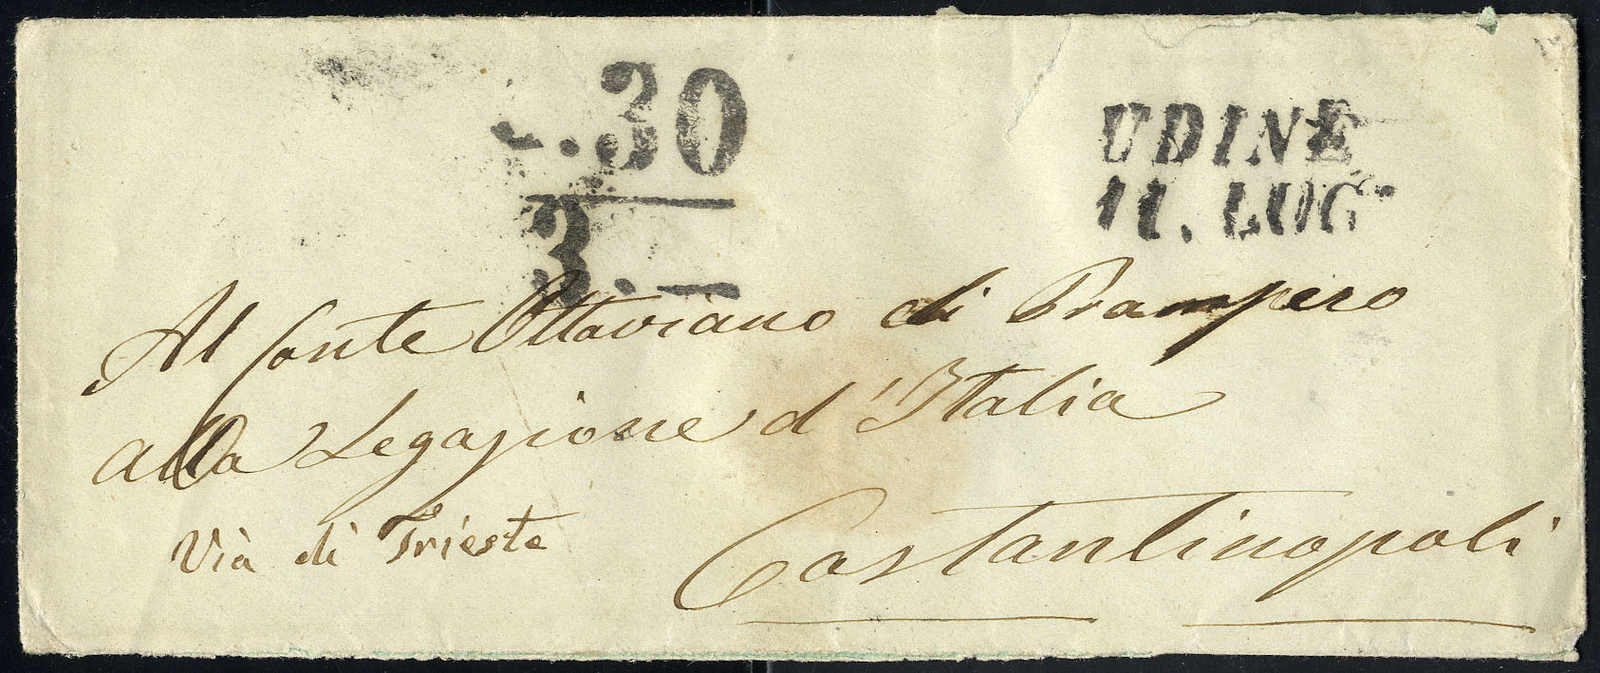 -.30
3.—
UDINE
11. LUG
Al Conte Ottaviano di Prampero
alla Legazione d'Italia
Via di Trieste
Costantinopoli